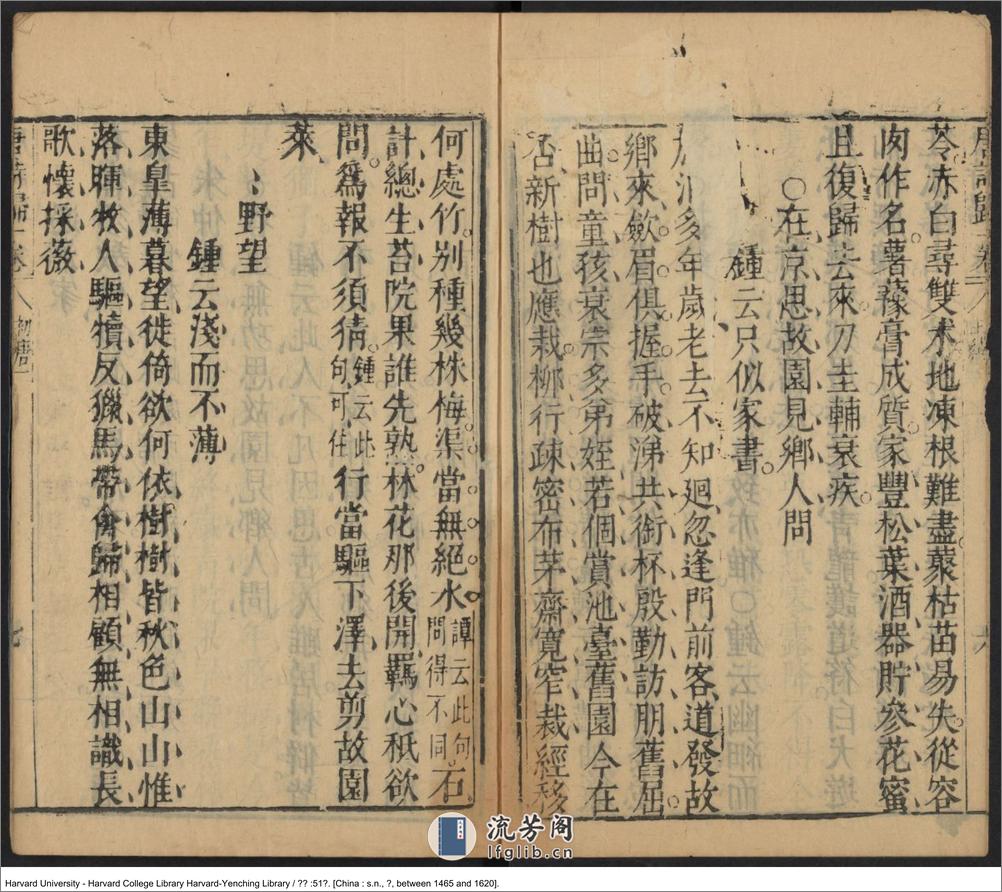 苓赤白尋雙朮地凍根難盡叢枯苗易失從容
肉作名薯蕷膏成質家豐松葉酒器貯參花蜜
且復歸去來刀圭輔衰疾
○在京思故園見鄉人問
鍾云只似家書
多年歲老去不知迴忽逢門前客道發故
鄉來歛眉俱握手破涕共銜杯殷勤訪朋舊屈
曲問童孩衰宗多弟姪若個賞池臺舊園今在
否新樹也應栽柳行疎密布茅齋寬窄裁經移
何處竹別種幾株梅渠當無絕水譚云此句問得不同石
計總生苔院果誰先熟林花那後開羈心秖欲
問爲報不須猜鍾云此句可住行當驅下澤去剪故園
萊
野望
鍾云淺而不薄
東皇薄暮望徙倚欲何依樹樹皆秋色山山惟
落暉牧人驅犢反獵馬帶禽歸相顧無相識長
歌懷採薇
唐詩歸 卷 八 初唐 七
流芳阁
lfglib.cn
Harvard University - Harvard College Library Harvard-Yenching Library / ?? :51?. [China : s.n., ?, between 1465 and 1620].